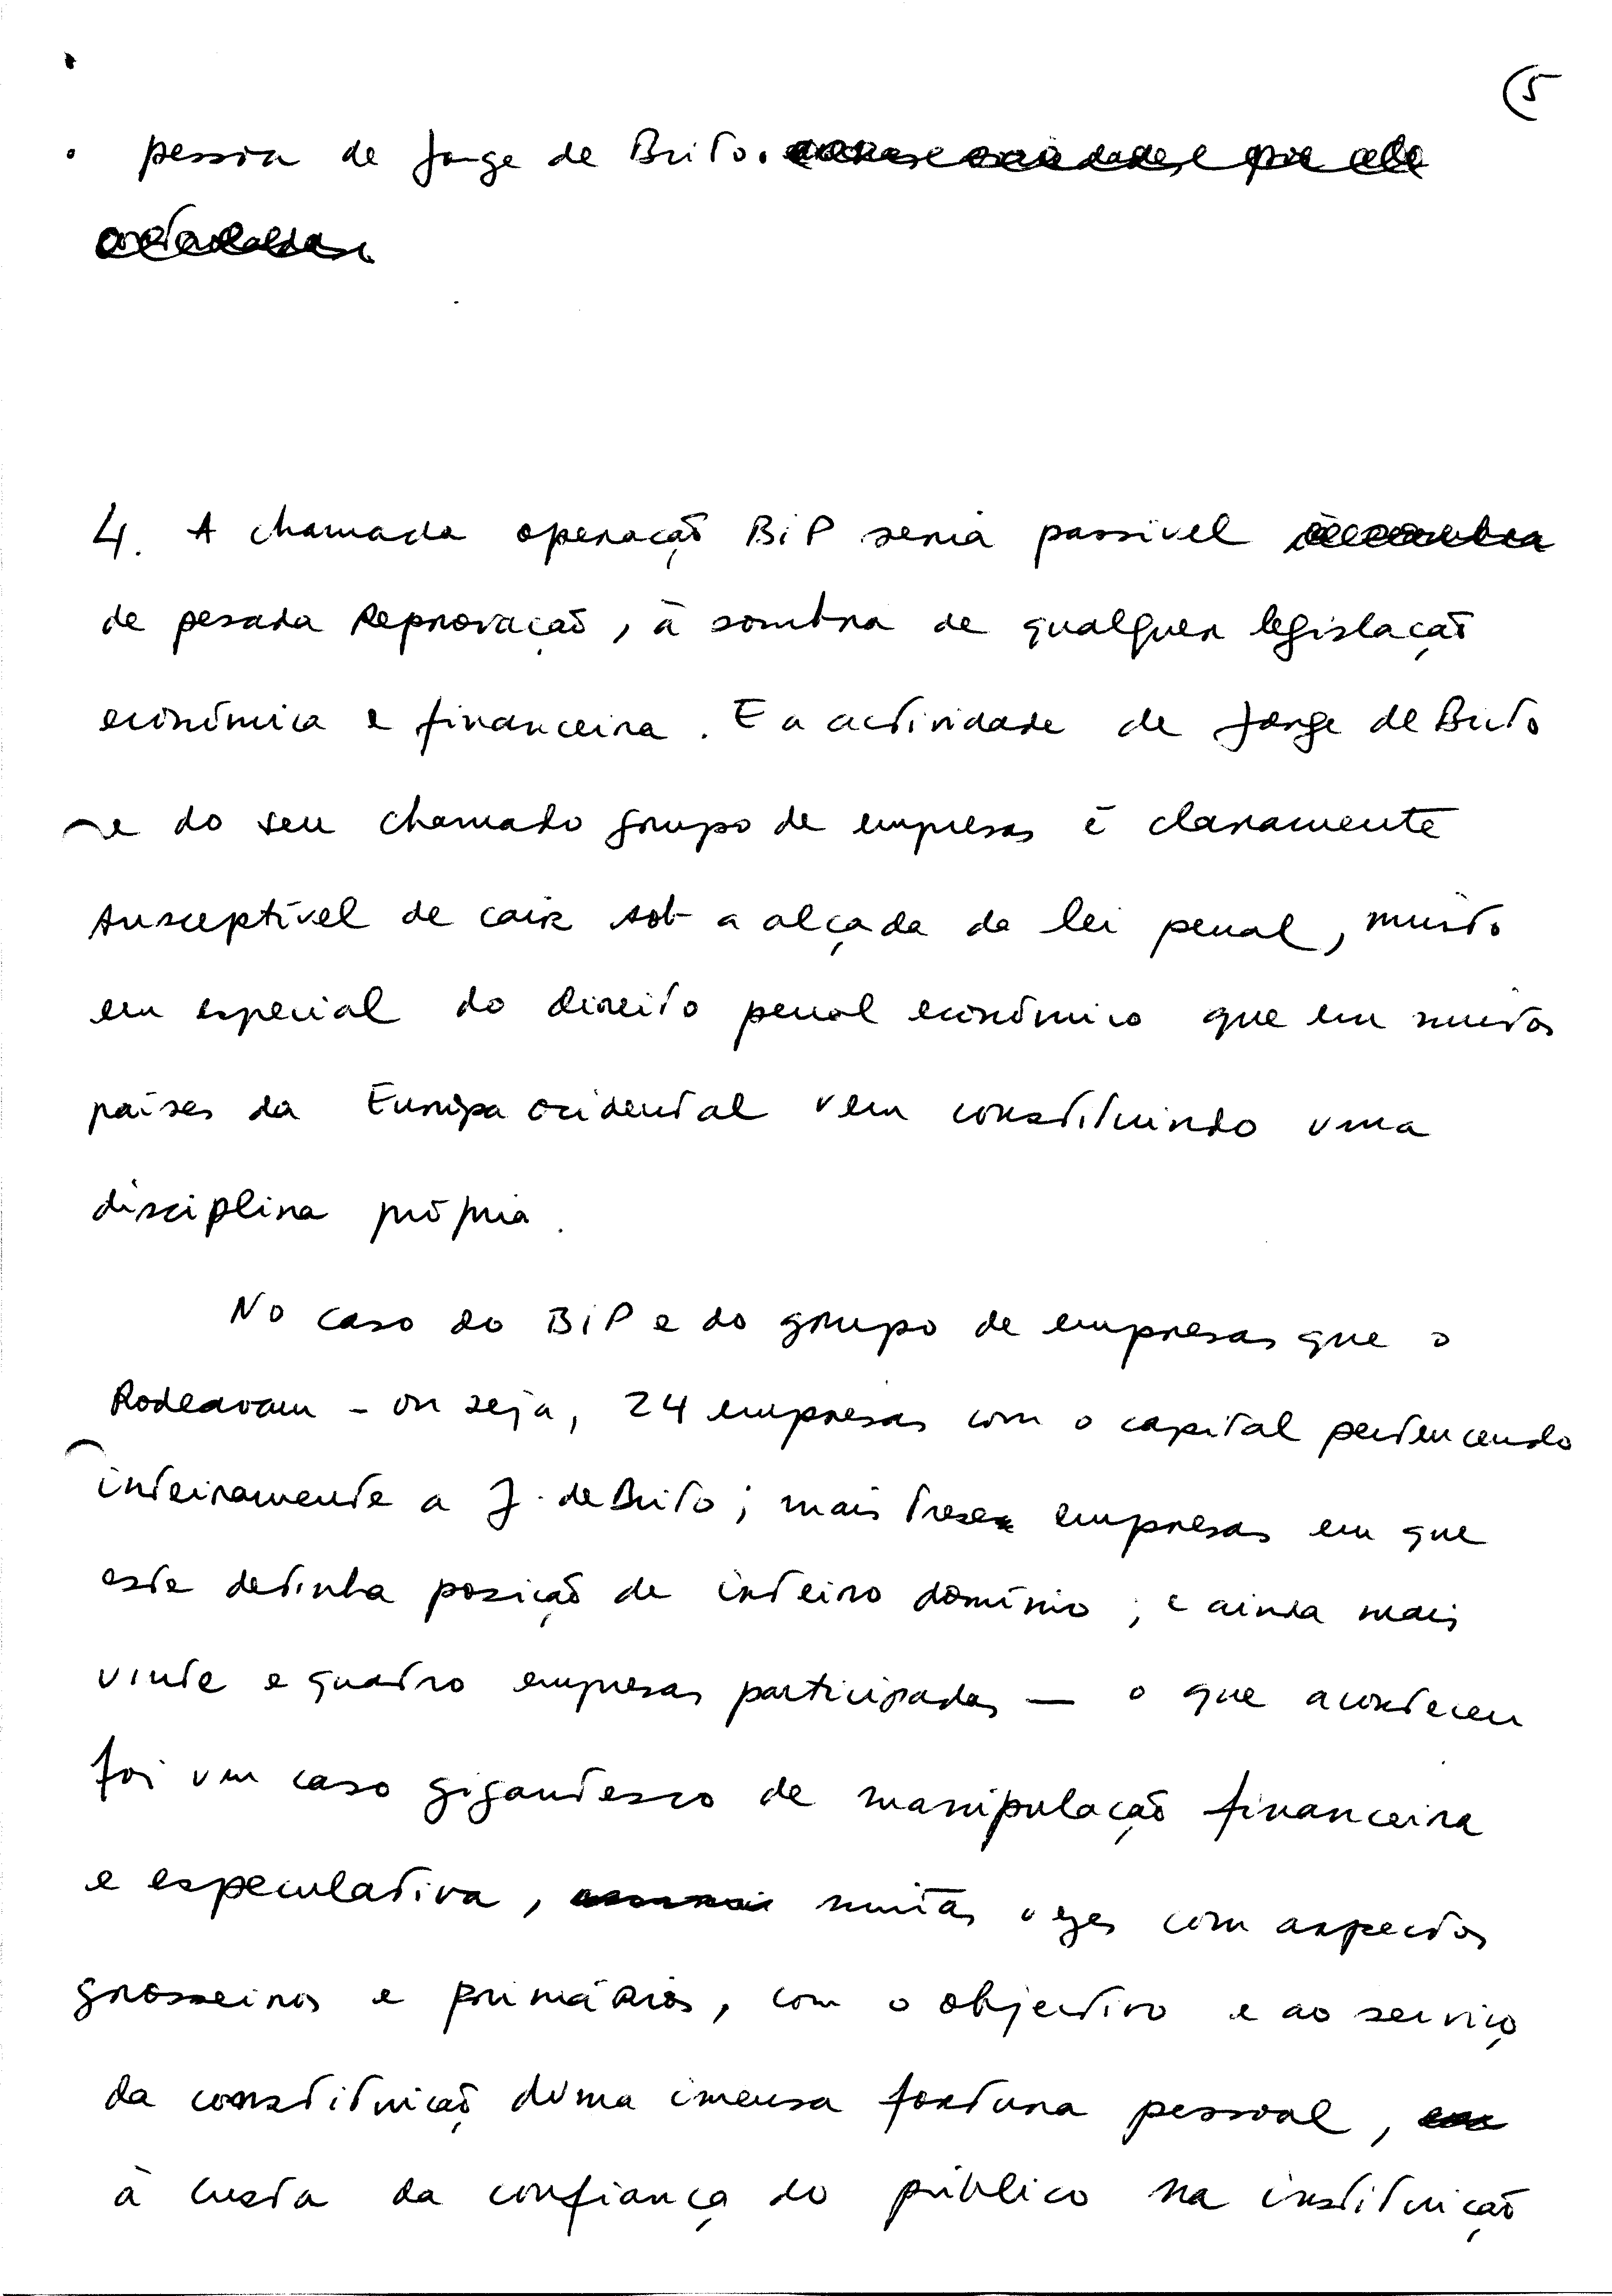 5
pessoa de Jorge de Brito.
4. A chamada operação BiP seria passível
de pesada reprovação, à sombra de qualquer legislação
económica e financeira. E a actividade de Jorge de Brito
e do seu chamado grupo de empresas é claramente
susceptível de cair sob a alçada da lei penal, muito
em especial do direito penal económico que em muitos
países da Europa ocidental vem constituindo uma
disciplina própria.
No caso do BiP e do grupo de empresas que o
rodeavam - ou seja, 24 empresas com o capital pertencendo
inteiramente a J. de Brito; mais treze empresas em que
este detinha posição de inteiro domínio; e ainda mais
vinte e quatro empresas participadas — o que aconteceu
foi um caso gigantesco de manipulação financeira
e especulativa, muitas vezes com aspectos
grosseiros e primários, com o objectivo e ao serviço
da constituição duma imensa fortuna pessoal,
à custa da confiança do público na instituição